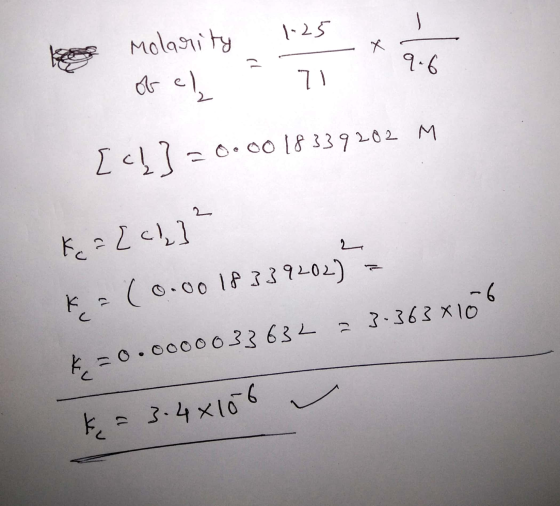 Molarity of cl₂ = 1.25/71 × 1/9.6
[cl₂] = 0.0018339202 M
Kc = [cl₂]²
Kc = (0.0018339202)² =
Kc = 0.0000033632 = 3.363 × 10⁻⁶
Kc = 3.4 × 10⁻⁶ ✓